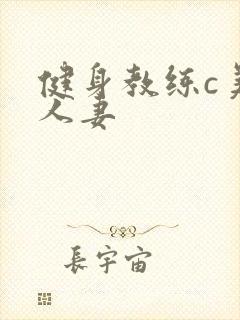 健身教练c
人妻
長宇宙